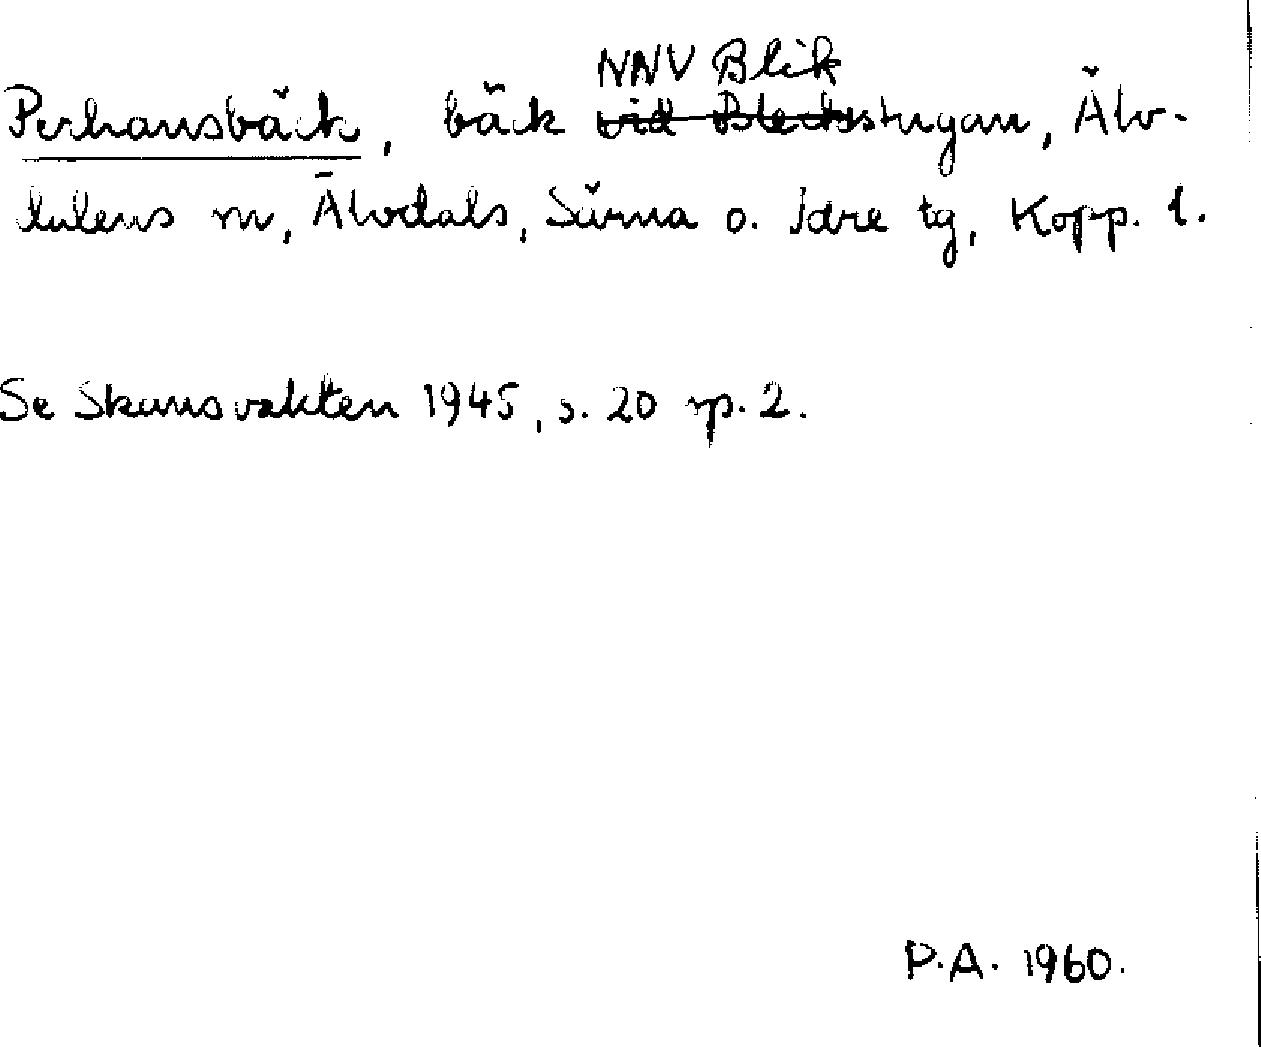 NNV Blik
Perhansbäck, bäck vid Blecksstugan, Älv-
lulens m, Älvdals, Särna o. Idre tg, Kopp. l.
Se Skansvakten 1945, s. 20 sp. 2.
P.A. 1960.